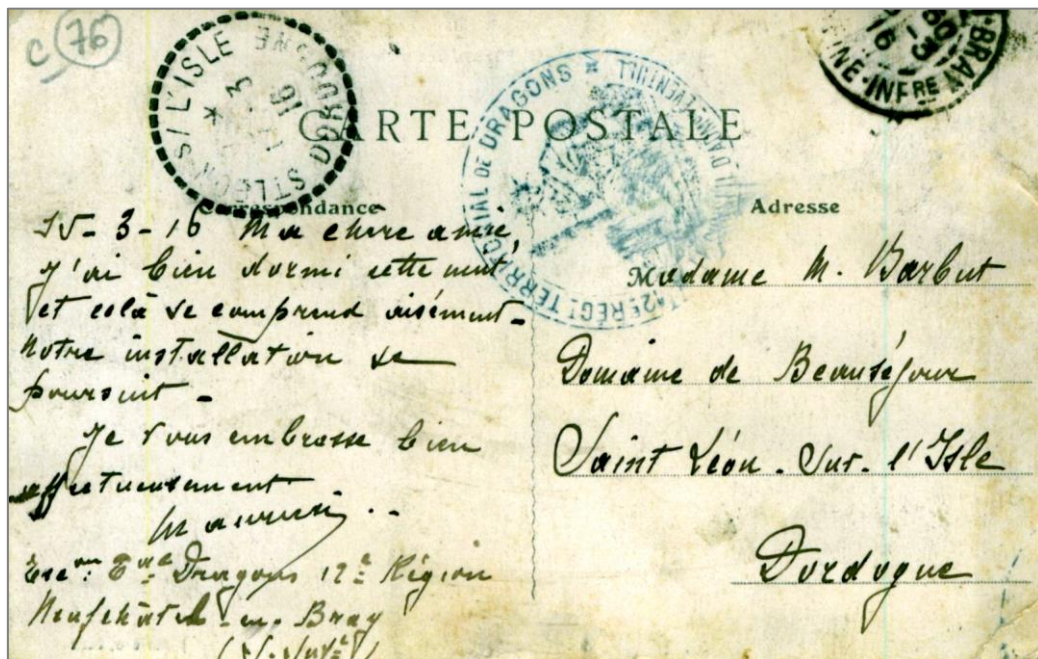 C 76
ST LÉON S/ L'ISLE
DORDOGNE
16
3
*
TERRITORIAL DE DRAGONS *
RÉGT
BRAY
INE-INFRE
16
CARTE POSTALE
Correspondance
Adresse
15-3-16 Ma chere amie,
J'ai bien dormi cette nuit
et celà se comprend aisément-
Notre installation se
poursuit -
Je vous embrasse bien
affectueusement
Maurice
Dragons 12e Région
Neufchâtel-en-Bray
Madame M. Barbut
Domaine de Beauséjour
Saint Léon. Sur. l'Isle
Dordogne